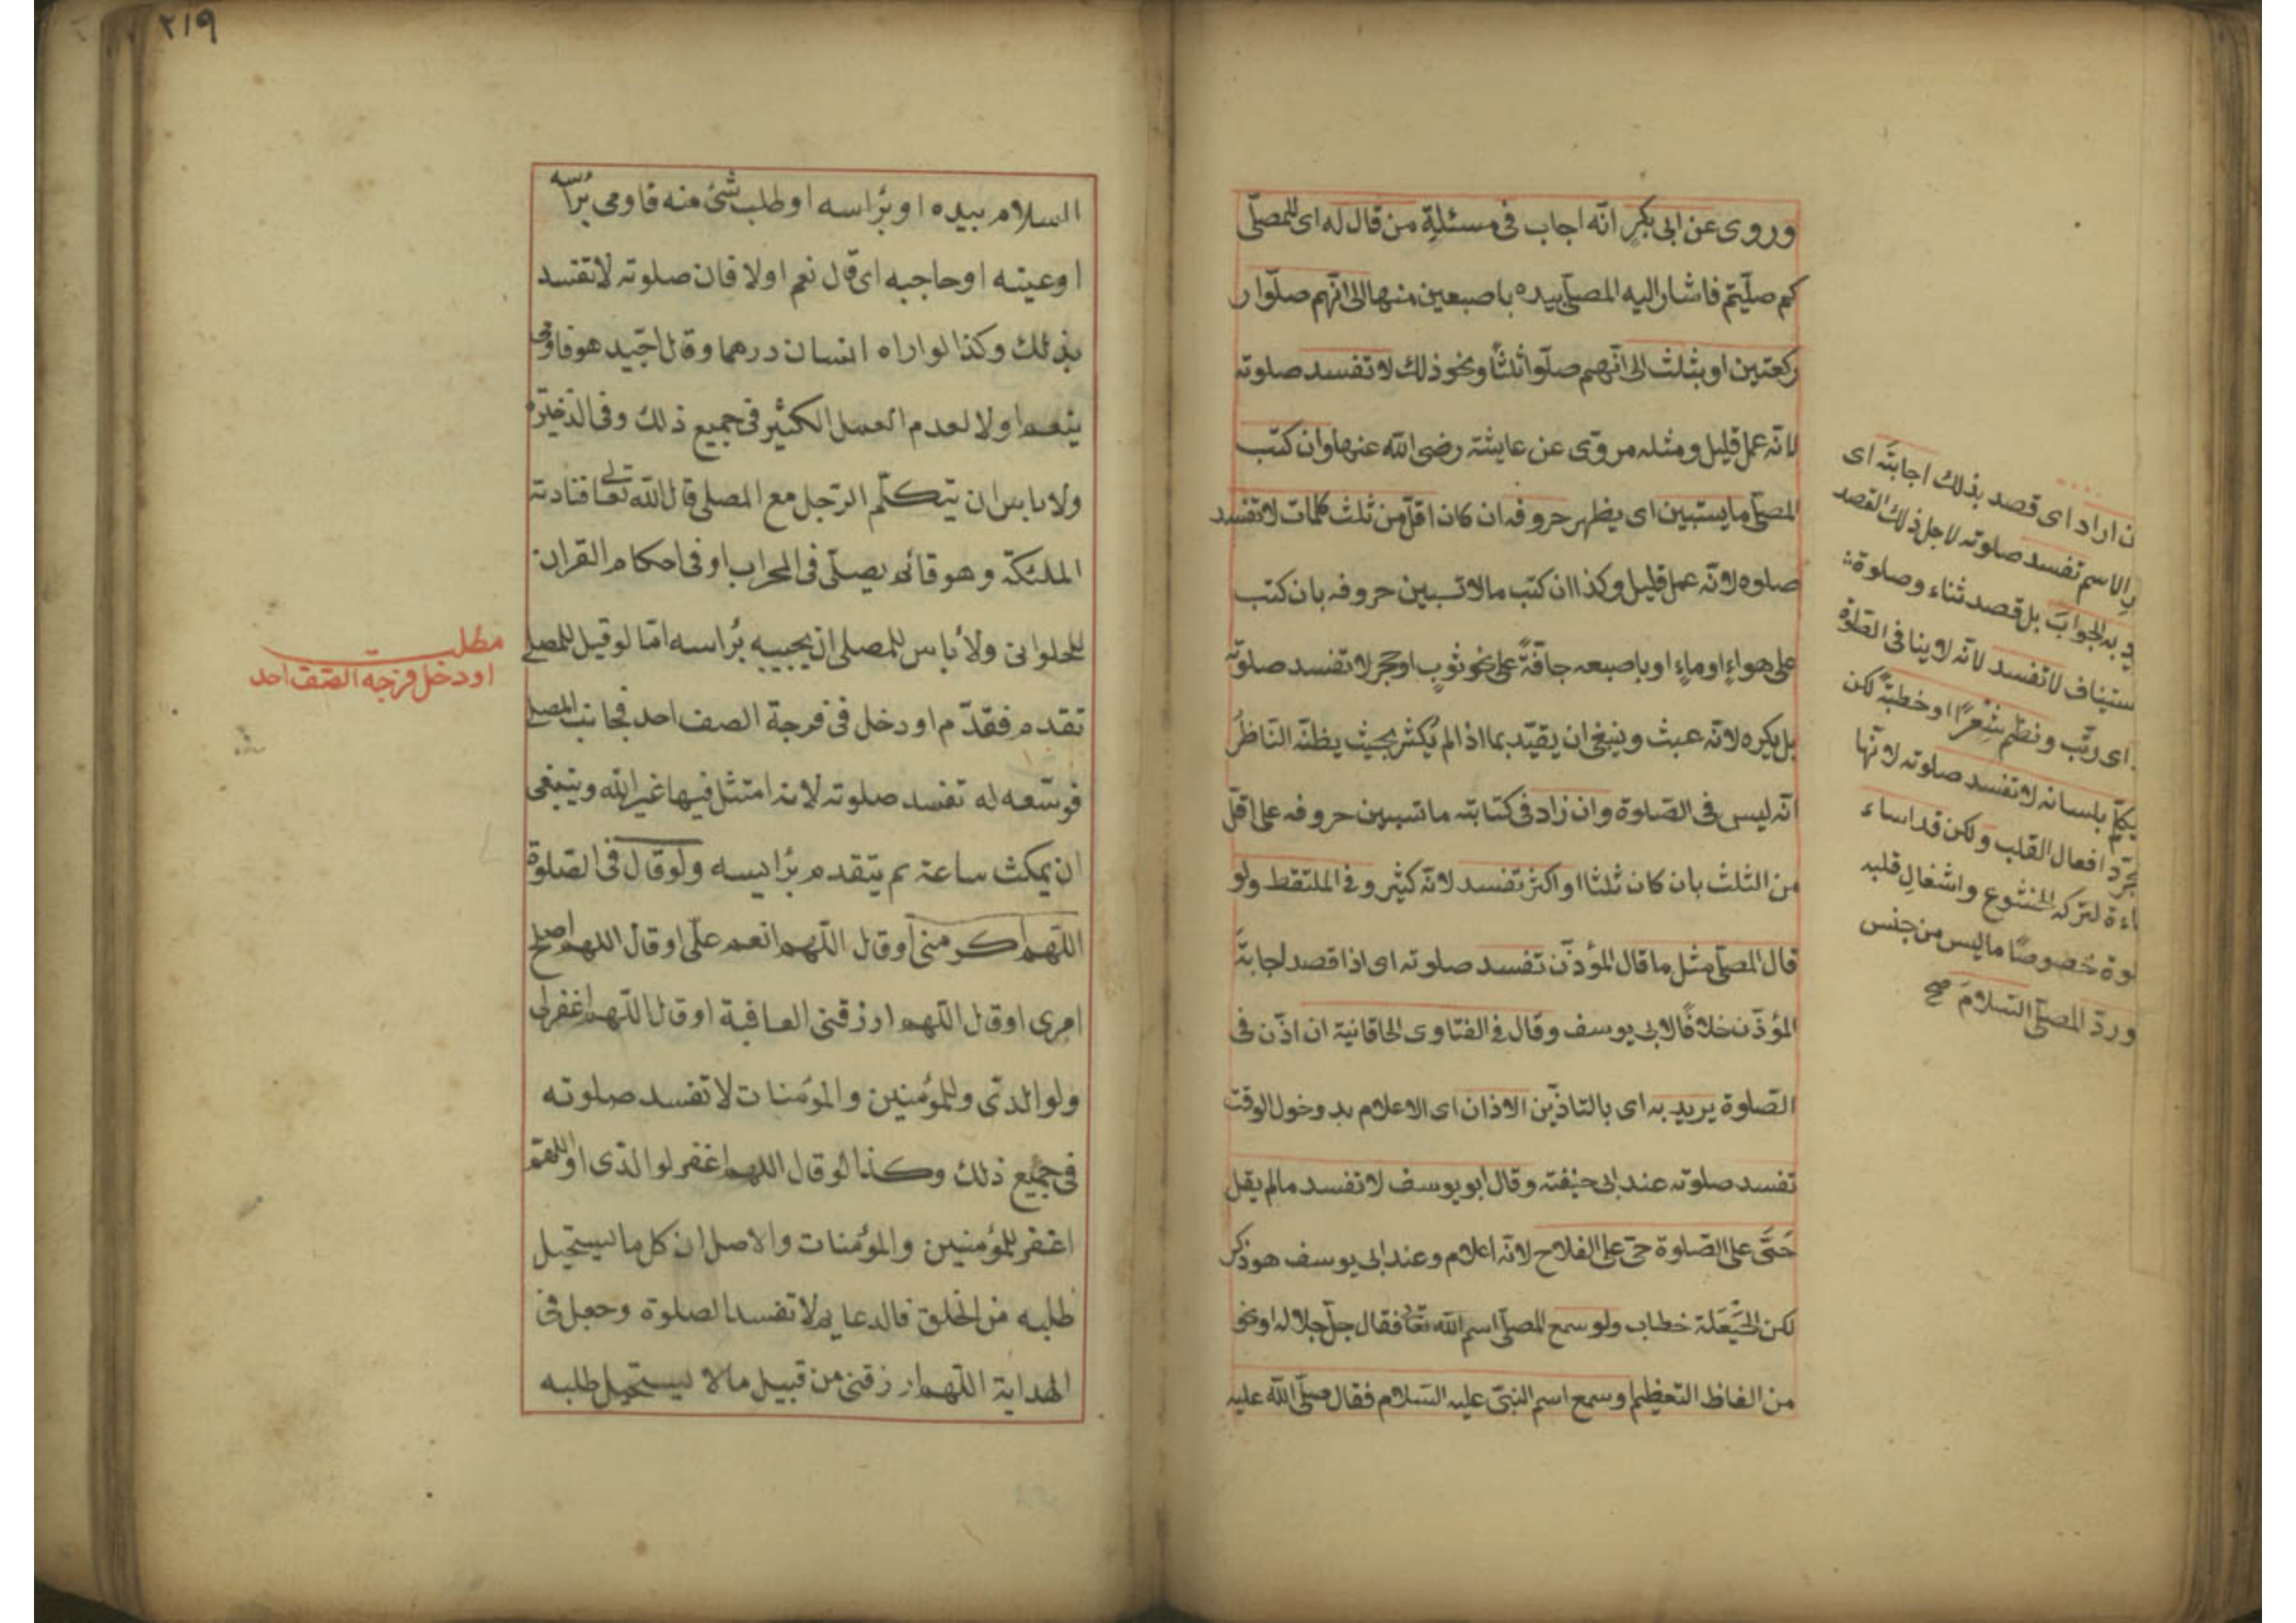 وروى عن ابى بكرٍ انّه اجاب فى مسئلةِ من قال له اى للمصلّى
كم صلّيتم فاشار اليه المصلّى بيده باصبعين منها الى انّهم صلّوا ر
ركعتين او بثلث الى انّهم صلّوا ثلثًا ونحو ذلك لا تفسد صلوته
لانّه عمل قليل ومثله مروىّ عن عايشة رضى الله عنها وان كتب
المصلّى ما يستبين اى يظهر حروفه ان كان اقلّ من ثلث كلمات لا تفسد
صلوه لانّه عمل قليل وكذا ان كتب مالا تسبين حروفه بان كتب
على هواءٍ او ماءٍ او باصبعه جافّةً على نحو ثوبٍ او حجر لا تفسد صلوته
بل يكره لانّه عبث وينبغى ان يقيّد بما اذا لم يكثر بحيث يظنّه النّاظرُ
انّه ليس فى الصّلوة وان زاد فى كتابته ما تسبين حروفه على اقلّ
من الثلث بان كان ثلثا او اكثر تفسد لانّه كثير وفى الملتقط ولو
قال المصلّى مثل ما قال المؤذّن تفسد صلوته اى اذا قصد لجابتَه
المؤذّن خلافًا لابى يوسف وقال فى الفتاوى الخاقانية ان اذّن فى
الصّلوة يريد به اى بالتاذين الاذان اى الاعلام بد وخول الوقت
تفسد صلوته عند ابى حنيفته وقال ابو يوسف لا تفسد مالم يقل
حَتَّى على الصّلوة حىّ على الفلاح لانّه اعلام وعند ابى يوسف هو ذكر
لكن الحَيْعَلة خطاب ولو سمع المصلّى اسم الله تعالى فقال جلّ جلاله او نحو
من الفاظ التعظيم او سمع اسم النبىّ عليه السّلام فقال صلّى الله عليه
ن اراد اى قصد بذلك اجابتَه اى
الاسم تفسد صلوته لاجل ذلك القصد
د به الجوابَ بل قصد ثناء وصلوة
ستيناف لا تفسد لانّه لا ينافى الصّلوة
اى رتّب ونظم شِعرًا او خطبةً لكن
يتكلّم بلسانه لا تفسد صلوته لانّها
جرّد افعال القلب ولكن قد اساء
اءة لتركه الخشوع واشغالِ قلبه
لوة خُصوصًا ما ليس من جنس
ورَدّ المصلّى السّلامَ صح
٢١٩
السلام بيده او برٔاسه او طلب شئ منه فاومى برٔاسه
او عينه او حاجبه اى قال نعم او لا فان صلوته لا تفسد
بذلك وكذا لو اراه انسان درهما وقال اجيد هو فاومى
بنعم او لا لعدم العمل الكثير فى جميع ذلك وفى الذخيرة
ولا باس ان يتكلّم الرّجل مع المصلى قال الله تعالى فنادته
الملئكة وهو قائم يصلّى فى المحراب او فى احكام القران
للحلوانى ولا باس للمصلى ان يجيبه برٔاسه امّا لو قيل للمصلى
تقدم فقدّم او دخل فى فرجة الصف احد فجانب المصلى
فوسّعه له تفسد صلوته لانه امتثل فيها غير الله وينبغى
ان يمكث ساعة ثم يتقدم برٔايسه ولو قال فى الصلوة
اللّهم اكرمنى او قال اللّهم انعم علىّ او قال اللهم اصلح
امرى او قال اللّهم ارزقنى العافية او قال اللّهم اغفرلى
ولوالدىّ وللمؤمنين والمؤمنات لا تفسد صلوته
فى جميع ذلك وكذا لو قال اللهم اغفر لوالدى او اللهم
اغفر للمؤمنين والمؤمنات والاصل ان كل ما ليستحيل
طلبه من الخلق فالدعا به لا تفسد الصلوة وجعل فى
الهداية اللّهم ارزقنى من قبيل مالا ليستحيل طلبه
مطلب
او دخل فرجه الصّف احد